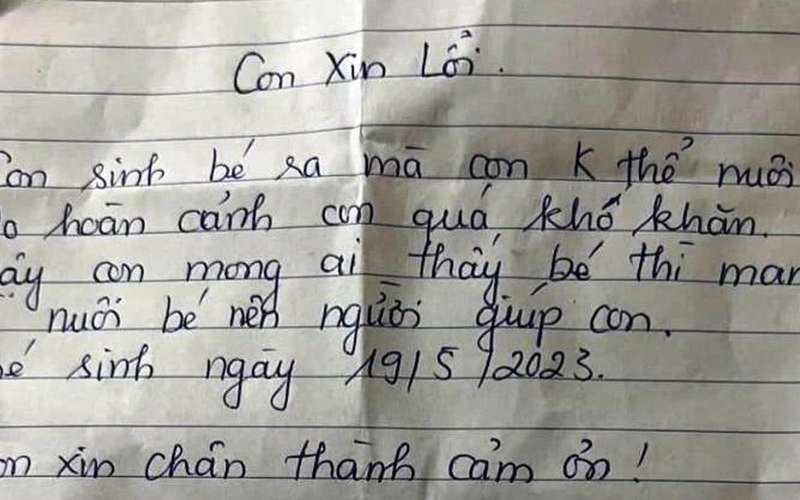 Con Xin Lỗi.
Con sinh bé ra mà con K thể nuôi
o hoàn cảnh con quá khó khăn.
ậy con mong ai thấy bé thì man
nuôi bé nên người giúp con.
bé sinh ngày 19/5/2023.
on xin chân thành cảm ơn!